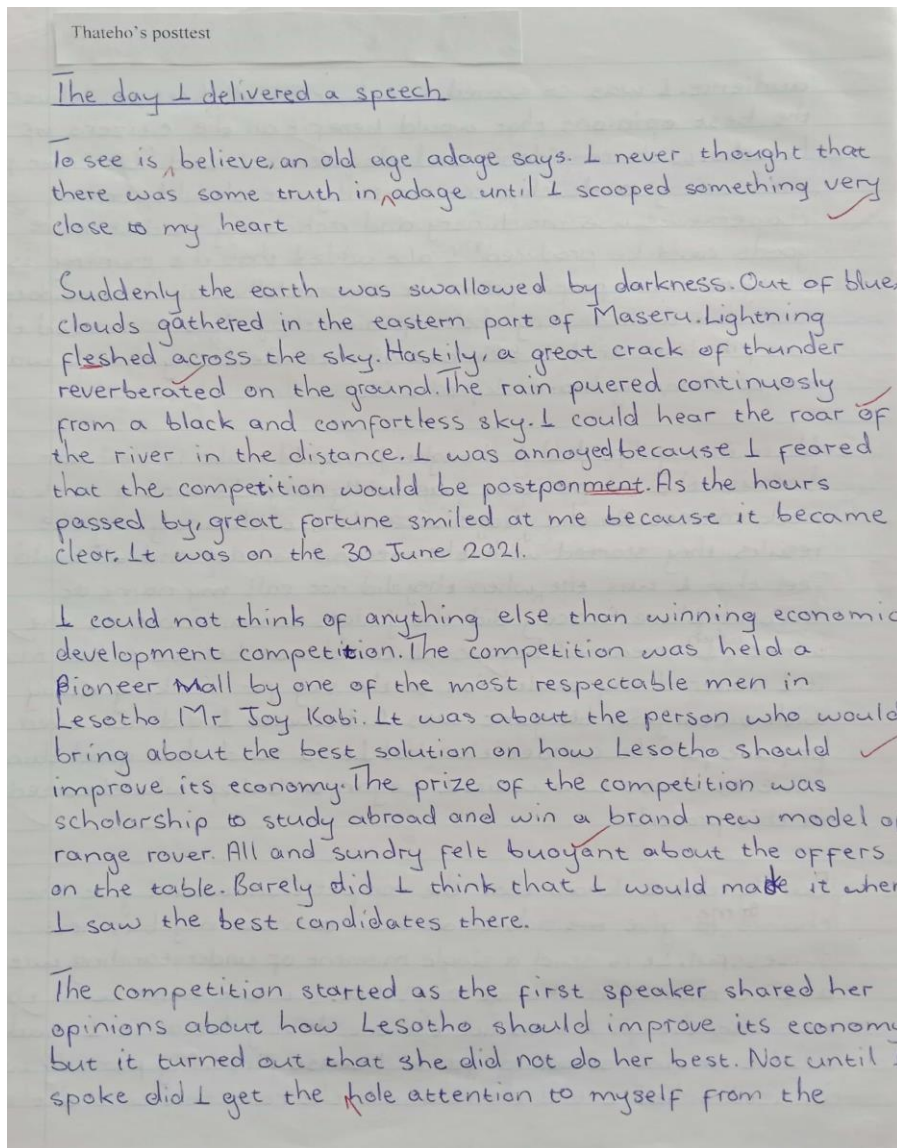 Thateho's posttest
The day I delivered a speech
To see is believe, an old age adage says. I never thought that
there was some truth in adage until I scooped something very
close to my heart
Suddenly the earth was swallowed by darkness. Out of blue,
clouds gathered in the eastern part of Maseru. Lightning
fleshed across the sky. Hastily, a great crack of thunder
reverberated on the ground. The rain puered continuosly
from a black and comfortless sky. I could hear the roar of
the river in the distance. I was annoyed because I feared
that the competition would be postponment. As the hours
passed by, great fortune smiled at me because it became
clear. It was on the 30 June 2021.
I could not think of anything else than winning economic
development competition. The competition was held a
Pioneer Mall by one of the most respectable men in
Lesotho Mr Joy Kabi. It was about the person who would
bring about the best solution on how Lesotho should
improve its economy. The prize of the competition was
scholarship to study abroad and win a brand new model o
range rover. All and sundry felt buoyant about the offers
on the table. Barely did I think that I would made it when
I saw the best candidates there.
The competition started as the first speaker shared her
opinions about how Lesotho should improve its economy
but it turned out that she did not do her best. Not until I
spoke did I get the hole attention to myself from the